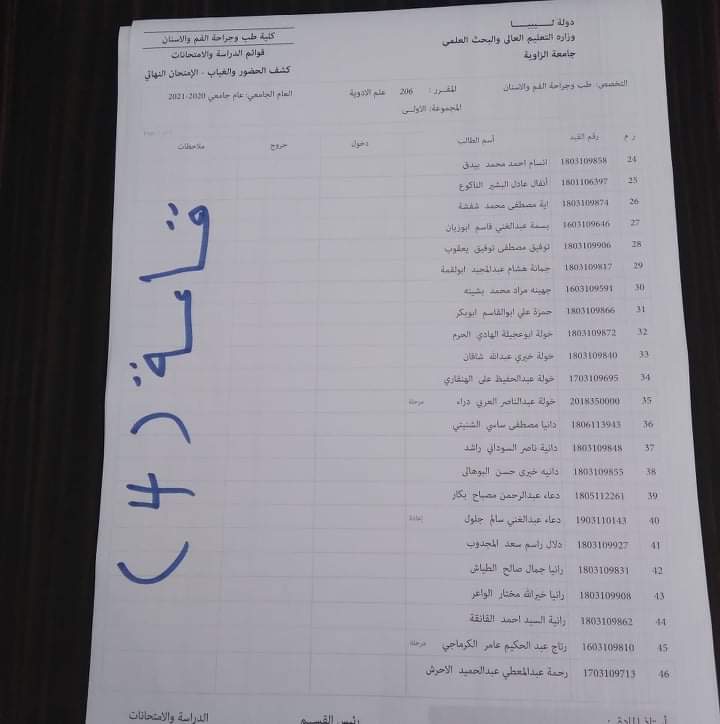 دولة ليبيا
وزاره التعليم العالى والبحث العلمي
جامعة الزاوية
كلية طب وجراحة الفم والاسنان
قوائم الدراسة والامتحانات
كشف الحضور والغياب - الإمتحان النهائي
التخصص: طب وجراحة الفم والاسنان
المقرر: 206 علم الادوية
العام الجامعي: عام جامعي 2020-2021
المجموعة: الاولى
ر م رقم القيد أسم الطالب دخول خروج ملاحظات
24 1803109858 ابتسام احمد محمد بيدق
25 1801106397 أنفال عادل البشير الناكوع
26 1803109874 اية مصطفى محمد شفشة
27 1603109646 بسمة عبدالغني قاسم ابوزيان
28 1803109906 توفيق مصطفى توفيق يعقوب
29 1803109817 جمانة هشام عبدالمجيد ابولقمة
30 1603109591 جهينه مراد محمد بشينه
31 1803109866 حمزة علي ابوالقاسم ابوبكر
32 1803109872 خولة ابوعجيلة الهادي الحرم
33 1803109840 خولة خيري عبدالله شاقان
34 1703109695 خولة عبدالحفيظ على الهنقاري
35 2018350000 خولة عبدالناصر العربي دراء مرحلة
36 1806113943 دانيا مصطفى سامي الشنيتي
37 1803109848 دانية ناصر السوداني راشد
38 1803109855 دانيه خيرى حسن البوهالى
39 1805112261 دعاء عبدالرحمن مصباح بكار
40 1903110143 دعاء عبدالغني سالم جلول إعادة
41 1803109927 دلال راسم سعد المجدوب
42 1803109831 رانيا جمال صالح الطياش
43 1803109908 رانيا خيرالله مختار الواعر
44 1803109862 رانية السيد احمد القانقة
45 1603109810 رتاج عبد الحكيم عامر الكرماجي مرحلة
46 1703109713 رحمة عبدالمعطي عبدالحميد الاحرش
قاعة (4)
رئيس القسم
الدراسة والامتحانات